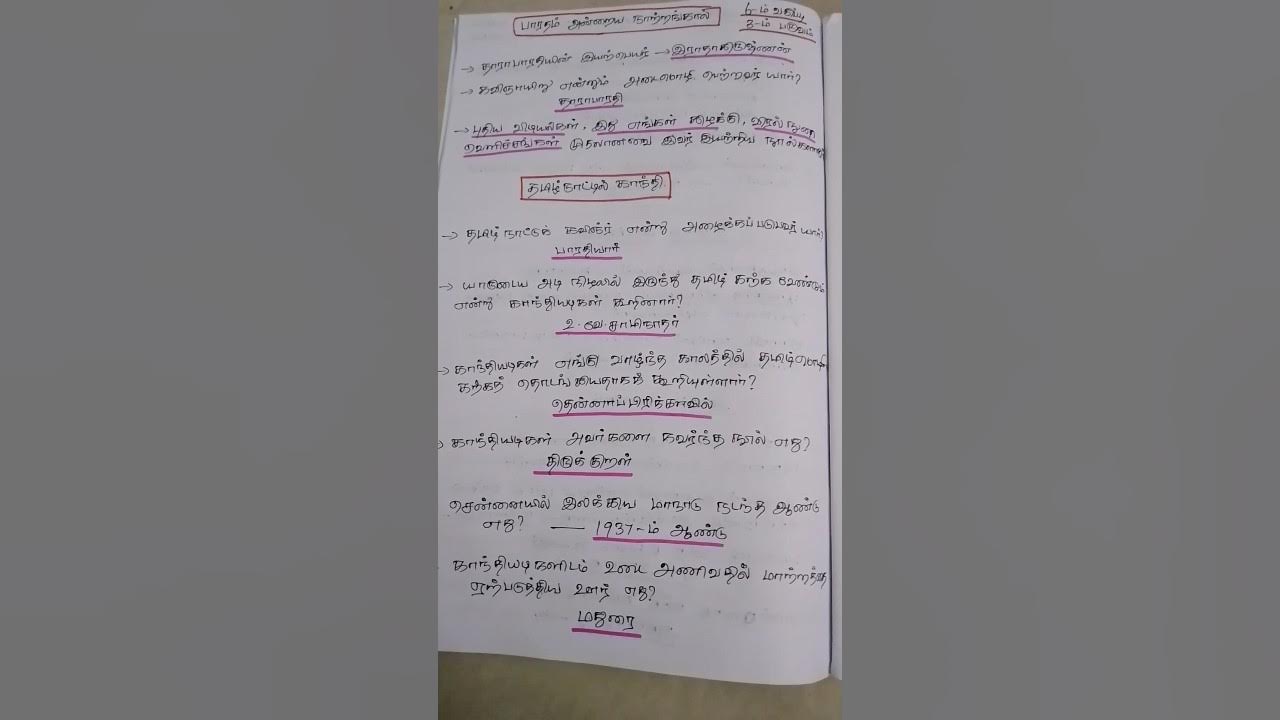 பாரதம் அன்றைய நாற்றங்கால்
6-ம் வகுப்பு
3-ம் பருவம்
→ தாராபாரதியின் இயற்பெயர் → இராதாகிருஷ்ணன்
→ கவிஞாயிறு என்னும் அடைமொழி பெற்றவர் யார்?
தாராபாரதி
→ புதிய விடியல்கள், இது எங்கள் கிழக்கி, விரல் நுனி
வெளிச்சங்கள் முதலானவை இவர் இயற்றிய நூல்களாகும்
தமிழ்நாட்டில் காந்தி
→ தமிழ் நாட்டுக் கவிஞர் என்று அழைக்கப்படுபவர் யார்?
பாரதியார்
→ யாருடைய அடி நிழலில் இருந்து தமிழ் கற்க வேண்டும்
என்று காந்தியடிகள் கூறினார்?
உ.வே.சாமிநாதர்
→ காந்தியடிகள் எங்கு வாழ்ந்த காலத்தில் தமிழ்மொழி
கற்கத் தொடங்கியதாகக் கூறியுள்ளார்?
தென்னாப்பிரிக்காவில்
காந்தியடிகள் அவர்களை கவர்ந்த நூல் எது?
திருக்குறள்
சென்னையில் இலக்கிய மாநாடு நடந்த ஆண்டு
எது? — 1937-ம் ஆண்டு
காந்தியடிகளிடம் உடை அணிவதில் மாற்றத்தை
ஏற்படுத்திய ஊர் எது?
மதுரை